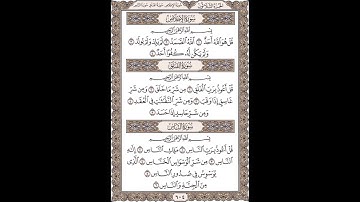 سُورَةُ الإِخْلَاصِ
بِسْمِ ٱللَّهِ ٱلرَّحْمَٰنِ ٱلرَّحِيمِ
قُلْ هُوَ ٱللَّهُ أَحَدٌ ١ ٱللَّهُ ٱلصَّمَدُ ٢ لَمْ يَلِدْ وَلَمْ يُولَدْ ٣
وَلَمْ يَكُن لَّهُۥ كُفُوًا أَحَدٌۢ ٤
سُورَةُ الفَلَقِ
بِسْمِ ٱللَّهِ ٱلرَّحْمَٰنِ ٱلرَّحِيمِ
قُلْ أَعُوذُ بِرَبِّ ٱلْفَلَقِ ١ مِن شَرِّ مَا خَلَقَ ٢ وَمِن شَرِّ
غَاسِقٍ إِذَا وَقَبَ ٣ وَمِن شَرِّ ٱلنَّفَّٰثَٰتِ فِي ٱلْعُقَدِ ٤
وَمِن شَرِّ حَاسِدٍ إِذَا حَسَدَ ٥
سُورَةُ النَّاسِ
بِسْمِ ٱللَّهِ ٱلرَّحْمَٰنِ ٱلرَّحِيمِ
قُلْ أَعُوذُ بِرَبِّ ٱلنَّاسِ ١ مَلِكِ ٱلنَّاسِ ٢ إِلَٰهِ
ٱلنَّاسِ ٣ مِن شَرِّ ٱلْوَسْوَاسِ ٱلْخَنَّاسِ ٤ ٱلَّذِي
يُوَسْوِسُ فِي صُدُورِ ٱلنَّاسِ ٥
مِنَ ٱلْجِنَّةِ وَٱلنَّاسِ ٦
٦٠٤